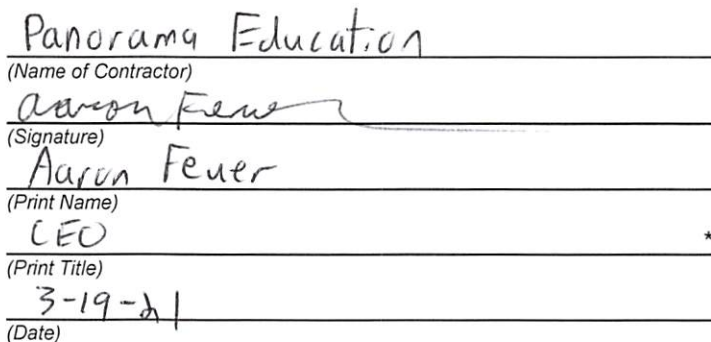 Panorama Education
(Name of Contractor)
Aaron Feuer
(Signature)
Aaron Feuer
(Print Name)
CEO *
(Print Title)
3-19-21
(Date)